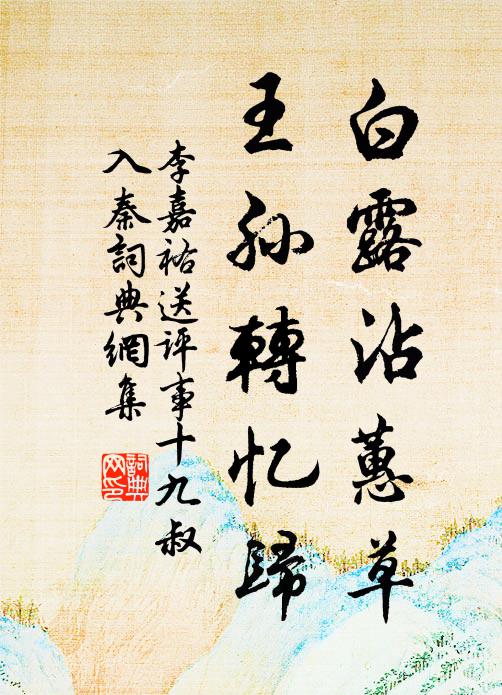 白露沾蕙草
王孙轉忆歸
李嘉祐送评事十九叔
入秦詞典網集
詞典
网印